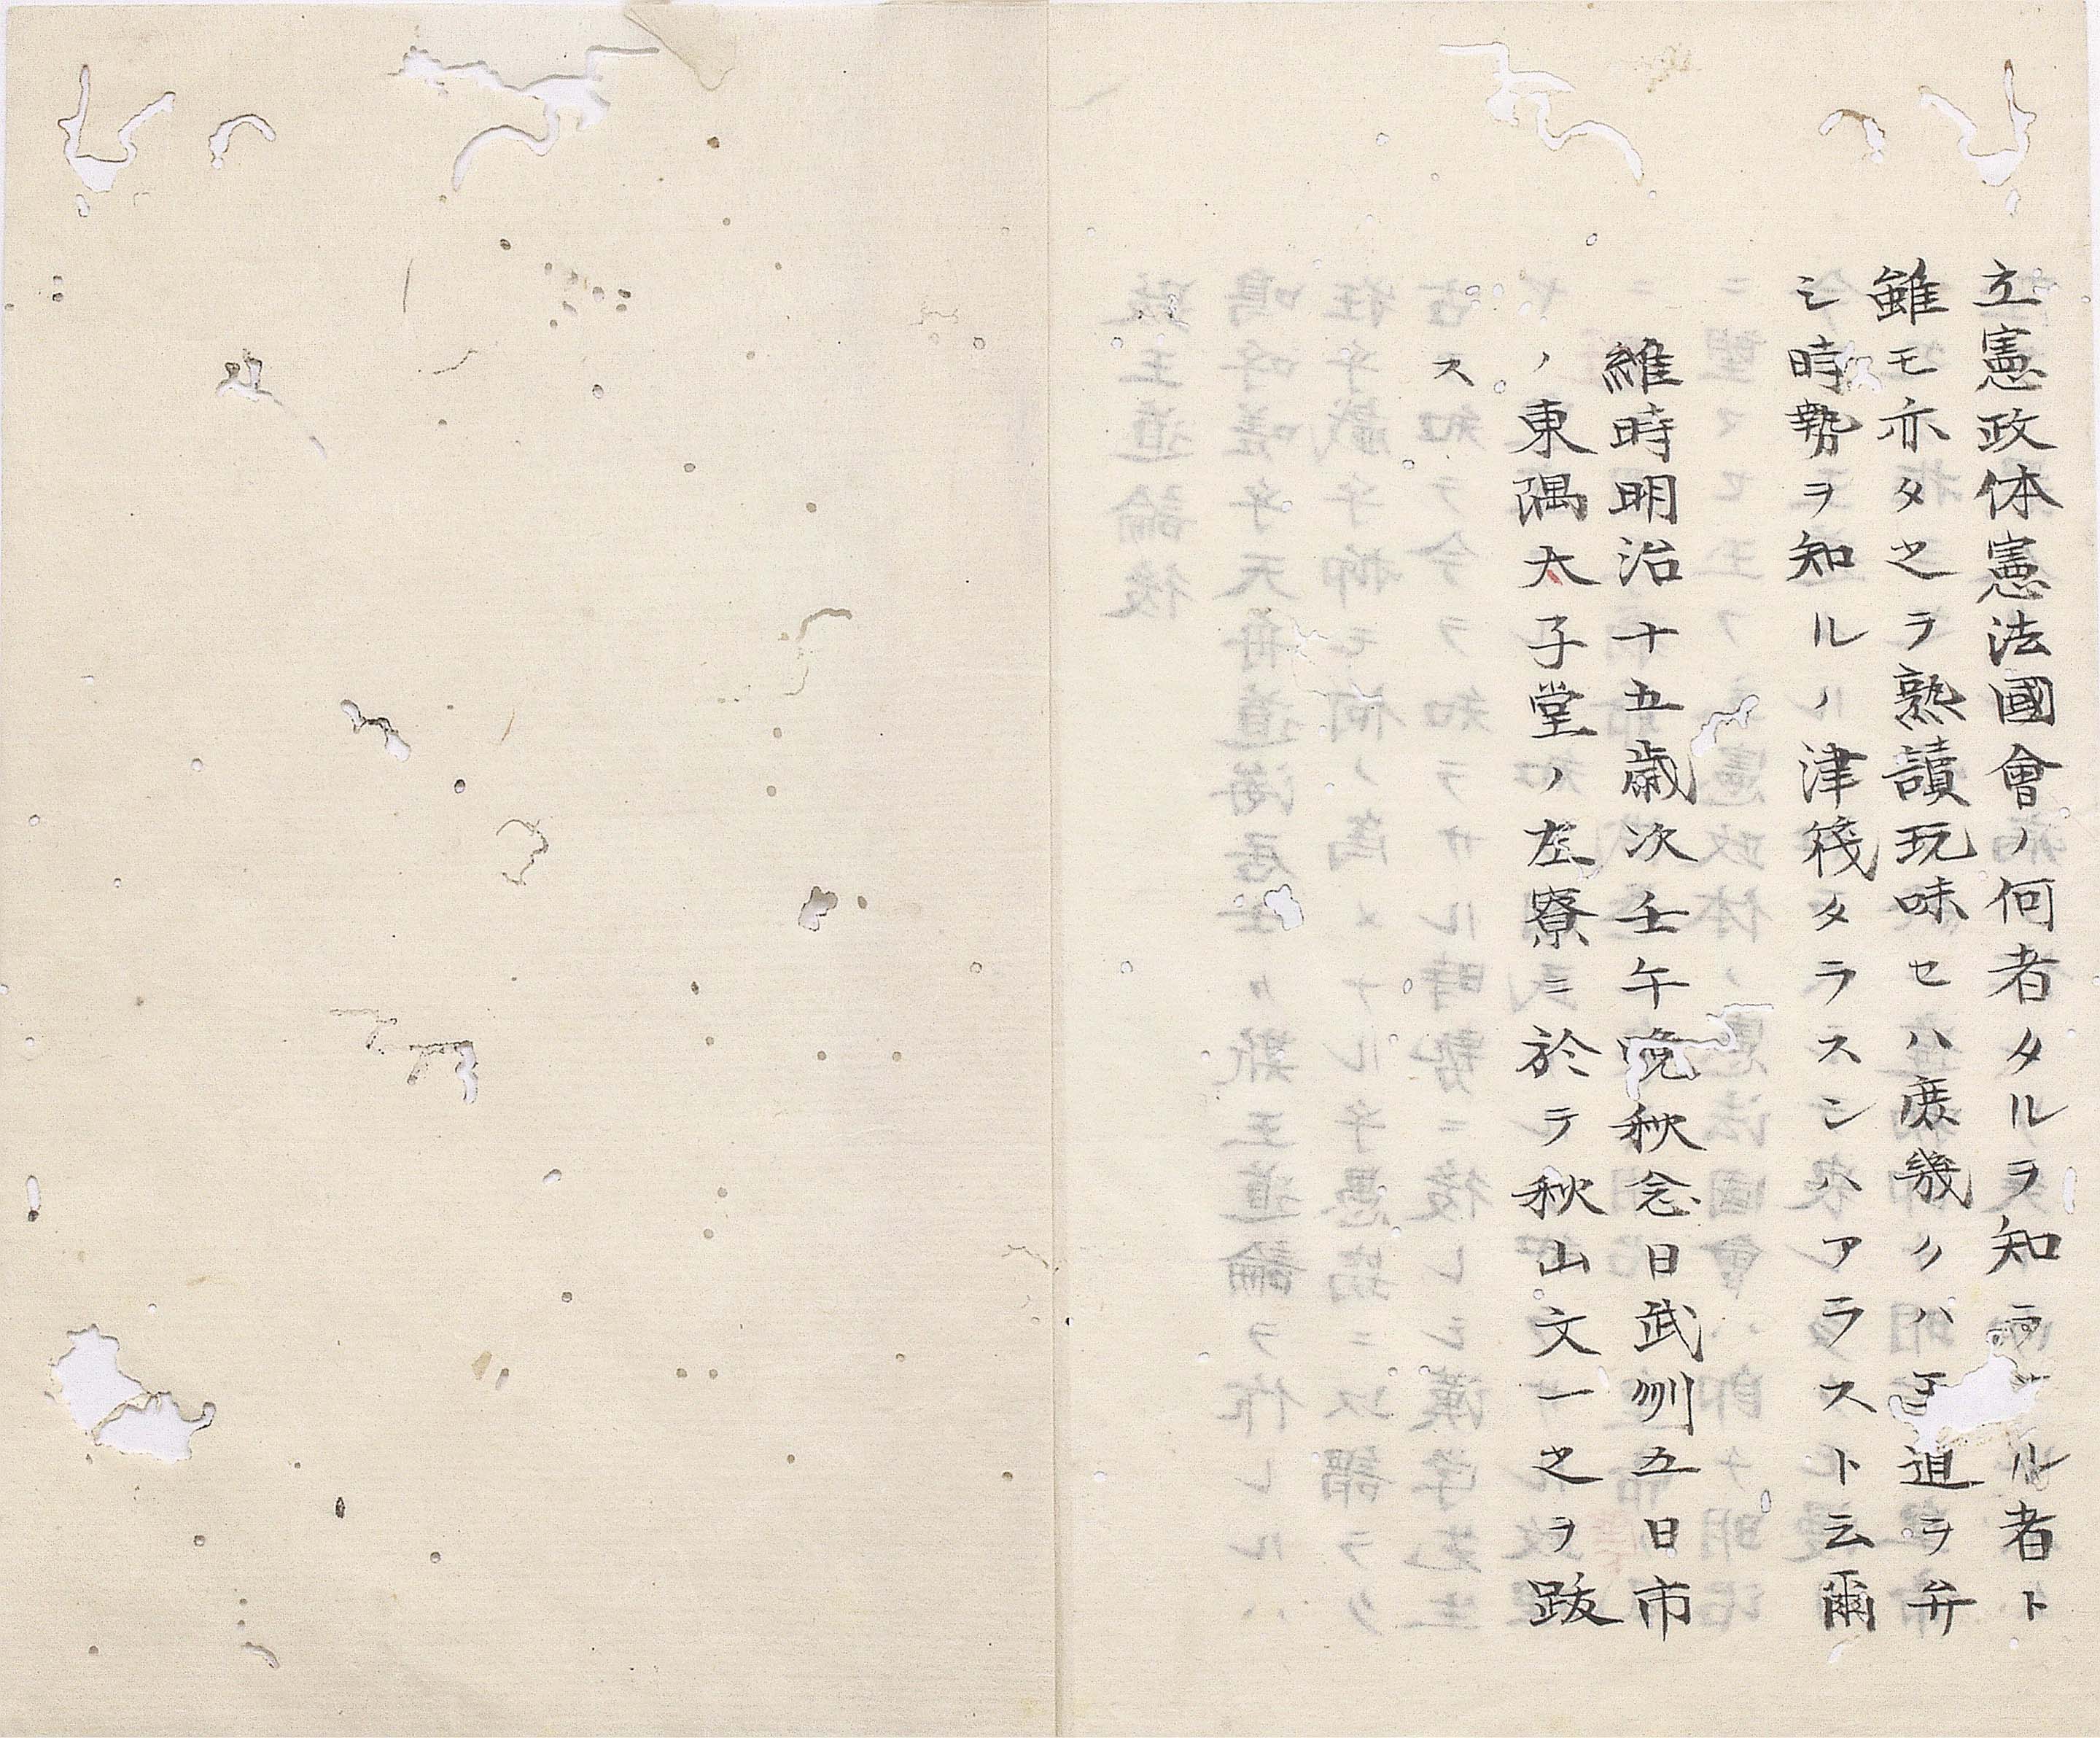 立憲政体憲法國會ノ何者タルヲ知ラ ル者ト
雖モ亦タ之ヲ熟讀玩味セハ庶幾クハ王道ヲ弁
シ時勢ヲ知ルノ津筏タラスンハアラスト云爾
維時明治十五歳次壬午晩秋念日武刕五日市
ノ東隅太子堂ノ左寮ニ於テ秋山文一之ヲ跋
ス